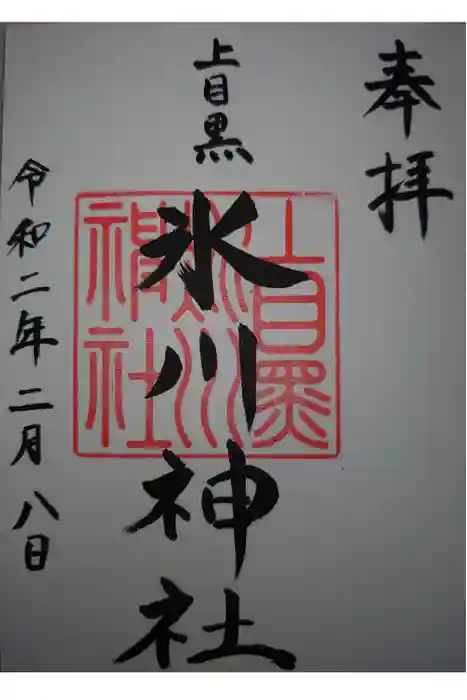 奉拝
上目黒
氷川神社
上目黒
氷川
神社
令和二年二月八日